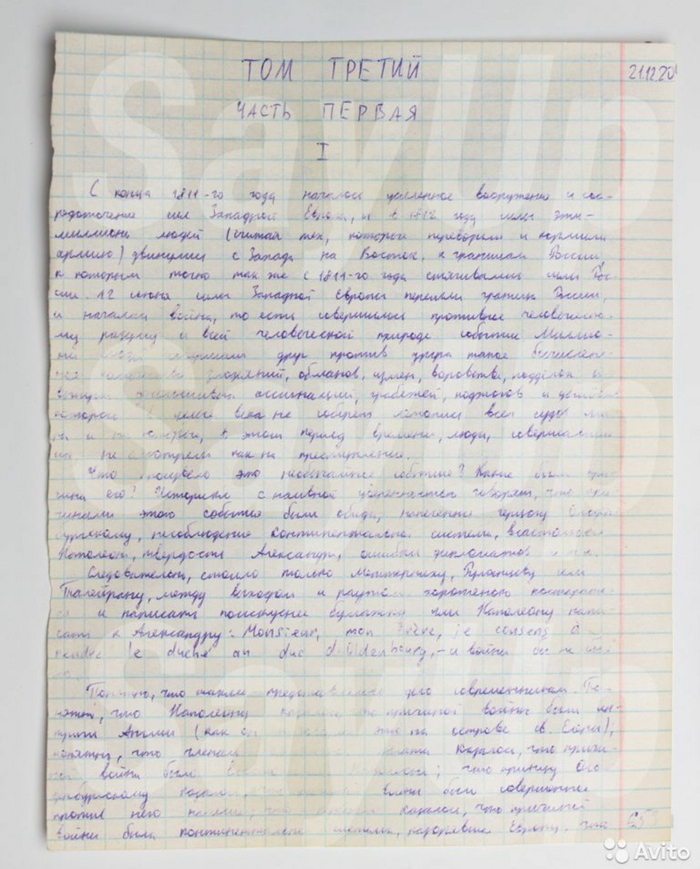 ТОМ ТРЕТИЙ
21.12.20
ЧАСТЬ ПЕРВАЯ
I
С конца 1811-го года началось усиленное вооружение и сос-
редоточение сил Западной Европы, и в 1812 году силы эти-
миллионы людей (считая тех, которые перевозили и кормили
армию) двинулись с Запада на Восток, к границам России,
к которым точно так же с 1811-го года стягивались силы Рос-
сии. 12 июня силы Западной Европы перешли границы России,
и началась война, то есть совершилось противное человеческо-
му разуму и всей человеческой природе событие. Миллио-
ны друг против друга такое бесчислен-
ное злодеяний, обманов, измен, воровства, подделок и
ассигнаций, грабежей, поджогов и
которого в целые века не соберет летопись всех судов ми-
ра и на которые, в этот период времени, люди, совершавшие
их, не смотрели как на преступления.
Что произвело это необычайное событие? Какие были при-
чины его? Историки с наивной уверенностью говорят, что при-
чинами этого события были обида, нанесенная герцогу Ольден-
бургскому, несоблюдение континентальной системы, властолюбие
Наполеона, твердость Александра, ошибки дипломатов и т.п.
Следовательно, стоило только Меттерниху, Румянцеву или
Талейрану, между выходом и раутом, хорошенько постарать-
ся и написать поискуснее бумажку или Наполеону напи-
сать к Александру: Monsieur, mon frère, je consens à
rendre le duché au duc d'Oldenbourg, - и войны бы не было
Понятно, что таким представлялось дело современникам. По-
нятно, что Наполеону казалось, что причиной войны были ин-
триги Англии (как он на острове св. Елены);
понятно, что членам палаты казалось, что причи-
ной войны было Наполеона; что принцу Оль-
денбургскому казалось, что войны было совершенное
против него насилие, что казалось, что причиной
войны была континентальная система, разорявшая Европу, что
SavUn
SavUn
SavUn
Avito